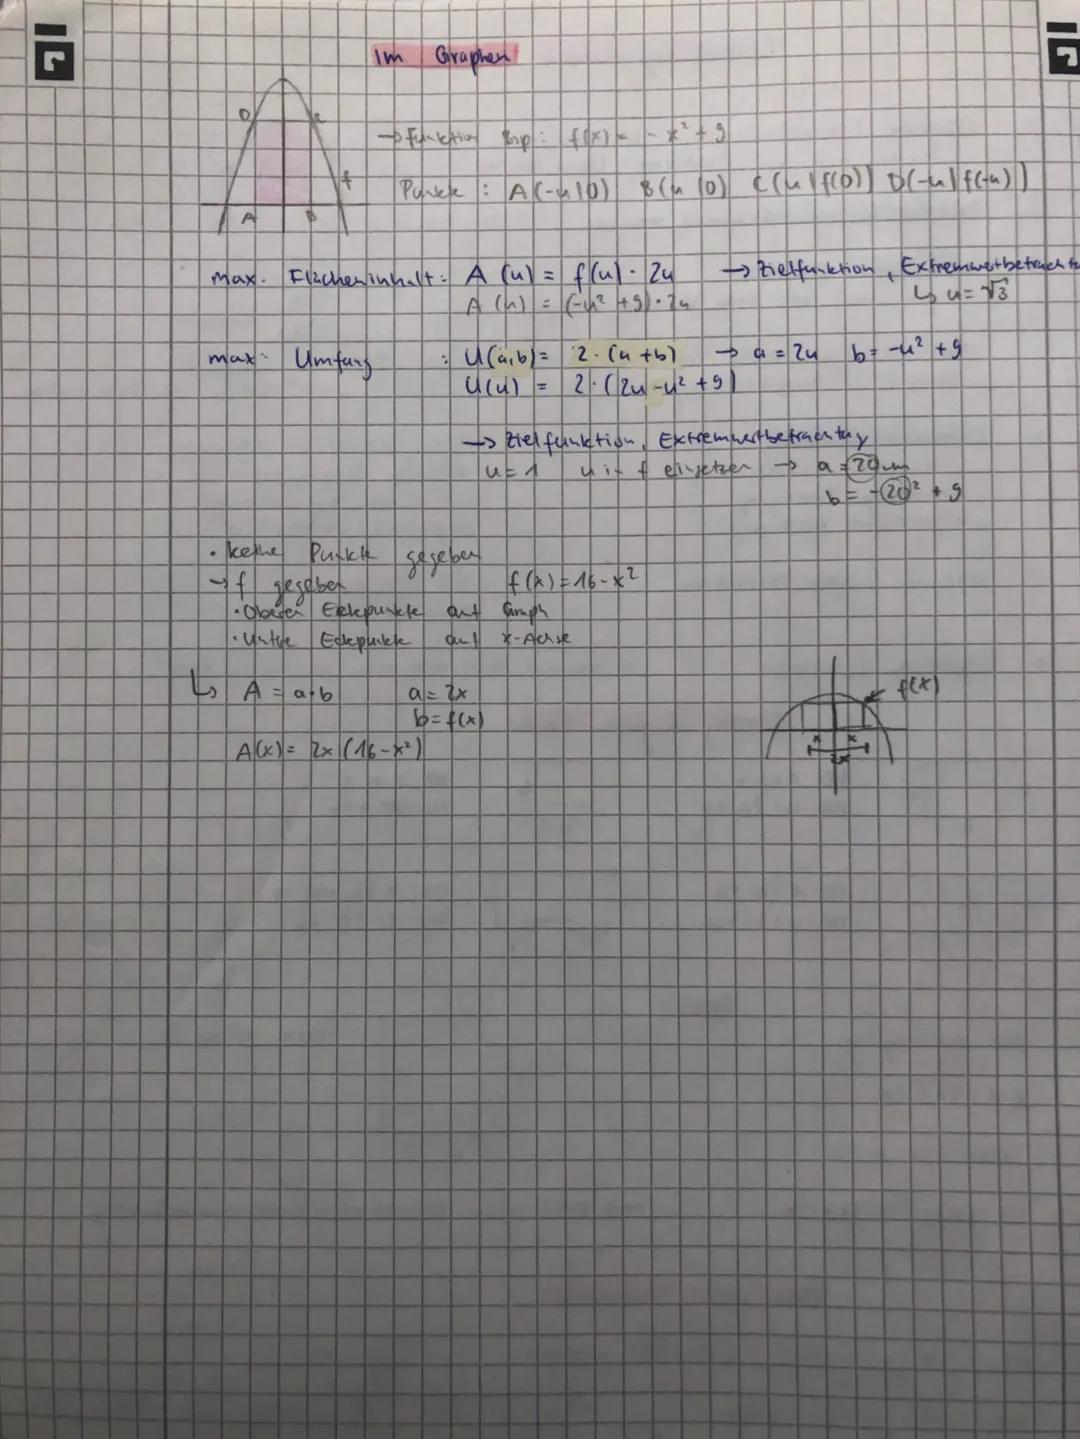 Im Graphen
D
→ Funktion Bsp.: f(x) = -x² + 9
f
Punkte : A(-u|0) B(u|0) C(u|f(0)) D(-u|f(-u))
A B
max. Flächeninhalt: A(u) = f(u) · 2u → Zielfunktion, Extremwertbetracht
A(u) = (-u² + 9) · 2u ↳ u = √3
max. Umfang : U(a,b) = 2·(a+b) → a = 2u b = -u² + 9
U(u) = 2·(2u - u² + 9)
→ Zielfunktion, Extremwertbetrachtung
u = 1 u in f einsetzen → a =
b = + 9
• keine Punkte gegeben
→ f gegeben f(x) = 16 - x²
• Oberen Eckpunkte auf Graph
• Untere Eckpunkte auf x-Achse
↳ A = a·b a = 2x
f(x)
b = f(x)
x x
A(x) = 2x (16 - x²)
2x